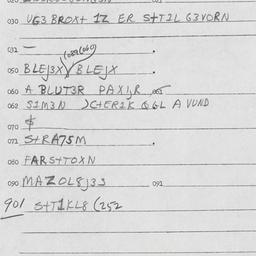 030 UG3 BROXT 1Z ER S++T2L G3VORN
031 —
050 BLEJ3X (089(060) BLEJX
060 A BLUT3R PAXIJR 065
062 S1M3N )C+ER2K Q6L A VUND
070 $
071 S+RA75M
080 FARS++OXN
090 MAZOL8J33 091
901 S++1KL8 (252